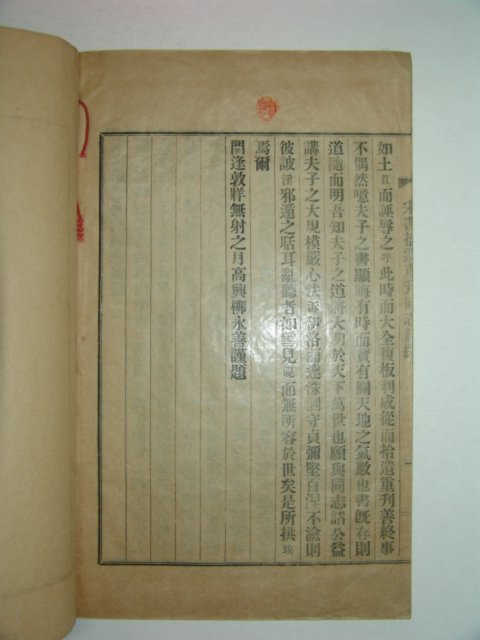 如土苴而誣辱之吁此時而大全復板刊成從而拾遺重刊善終事
不偶然噫夫子之書顯晦有時而實有關天地之氣數也書旣存則
道隨而明吾知夫子之道將大明於天下萬世也願與同志諸公益
講夫子之大規模嚴心法派伊洛而達洙泗守貞彌堅百涅不渝則
彼詖淫邪遁之聒耳亂聽者如雪見晛而無所容於世矣是所拱竢
焉爾
閼逢敦牂無射之月高興柳永善謹題